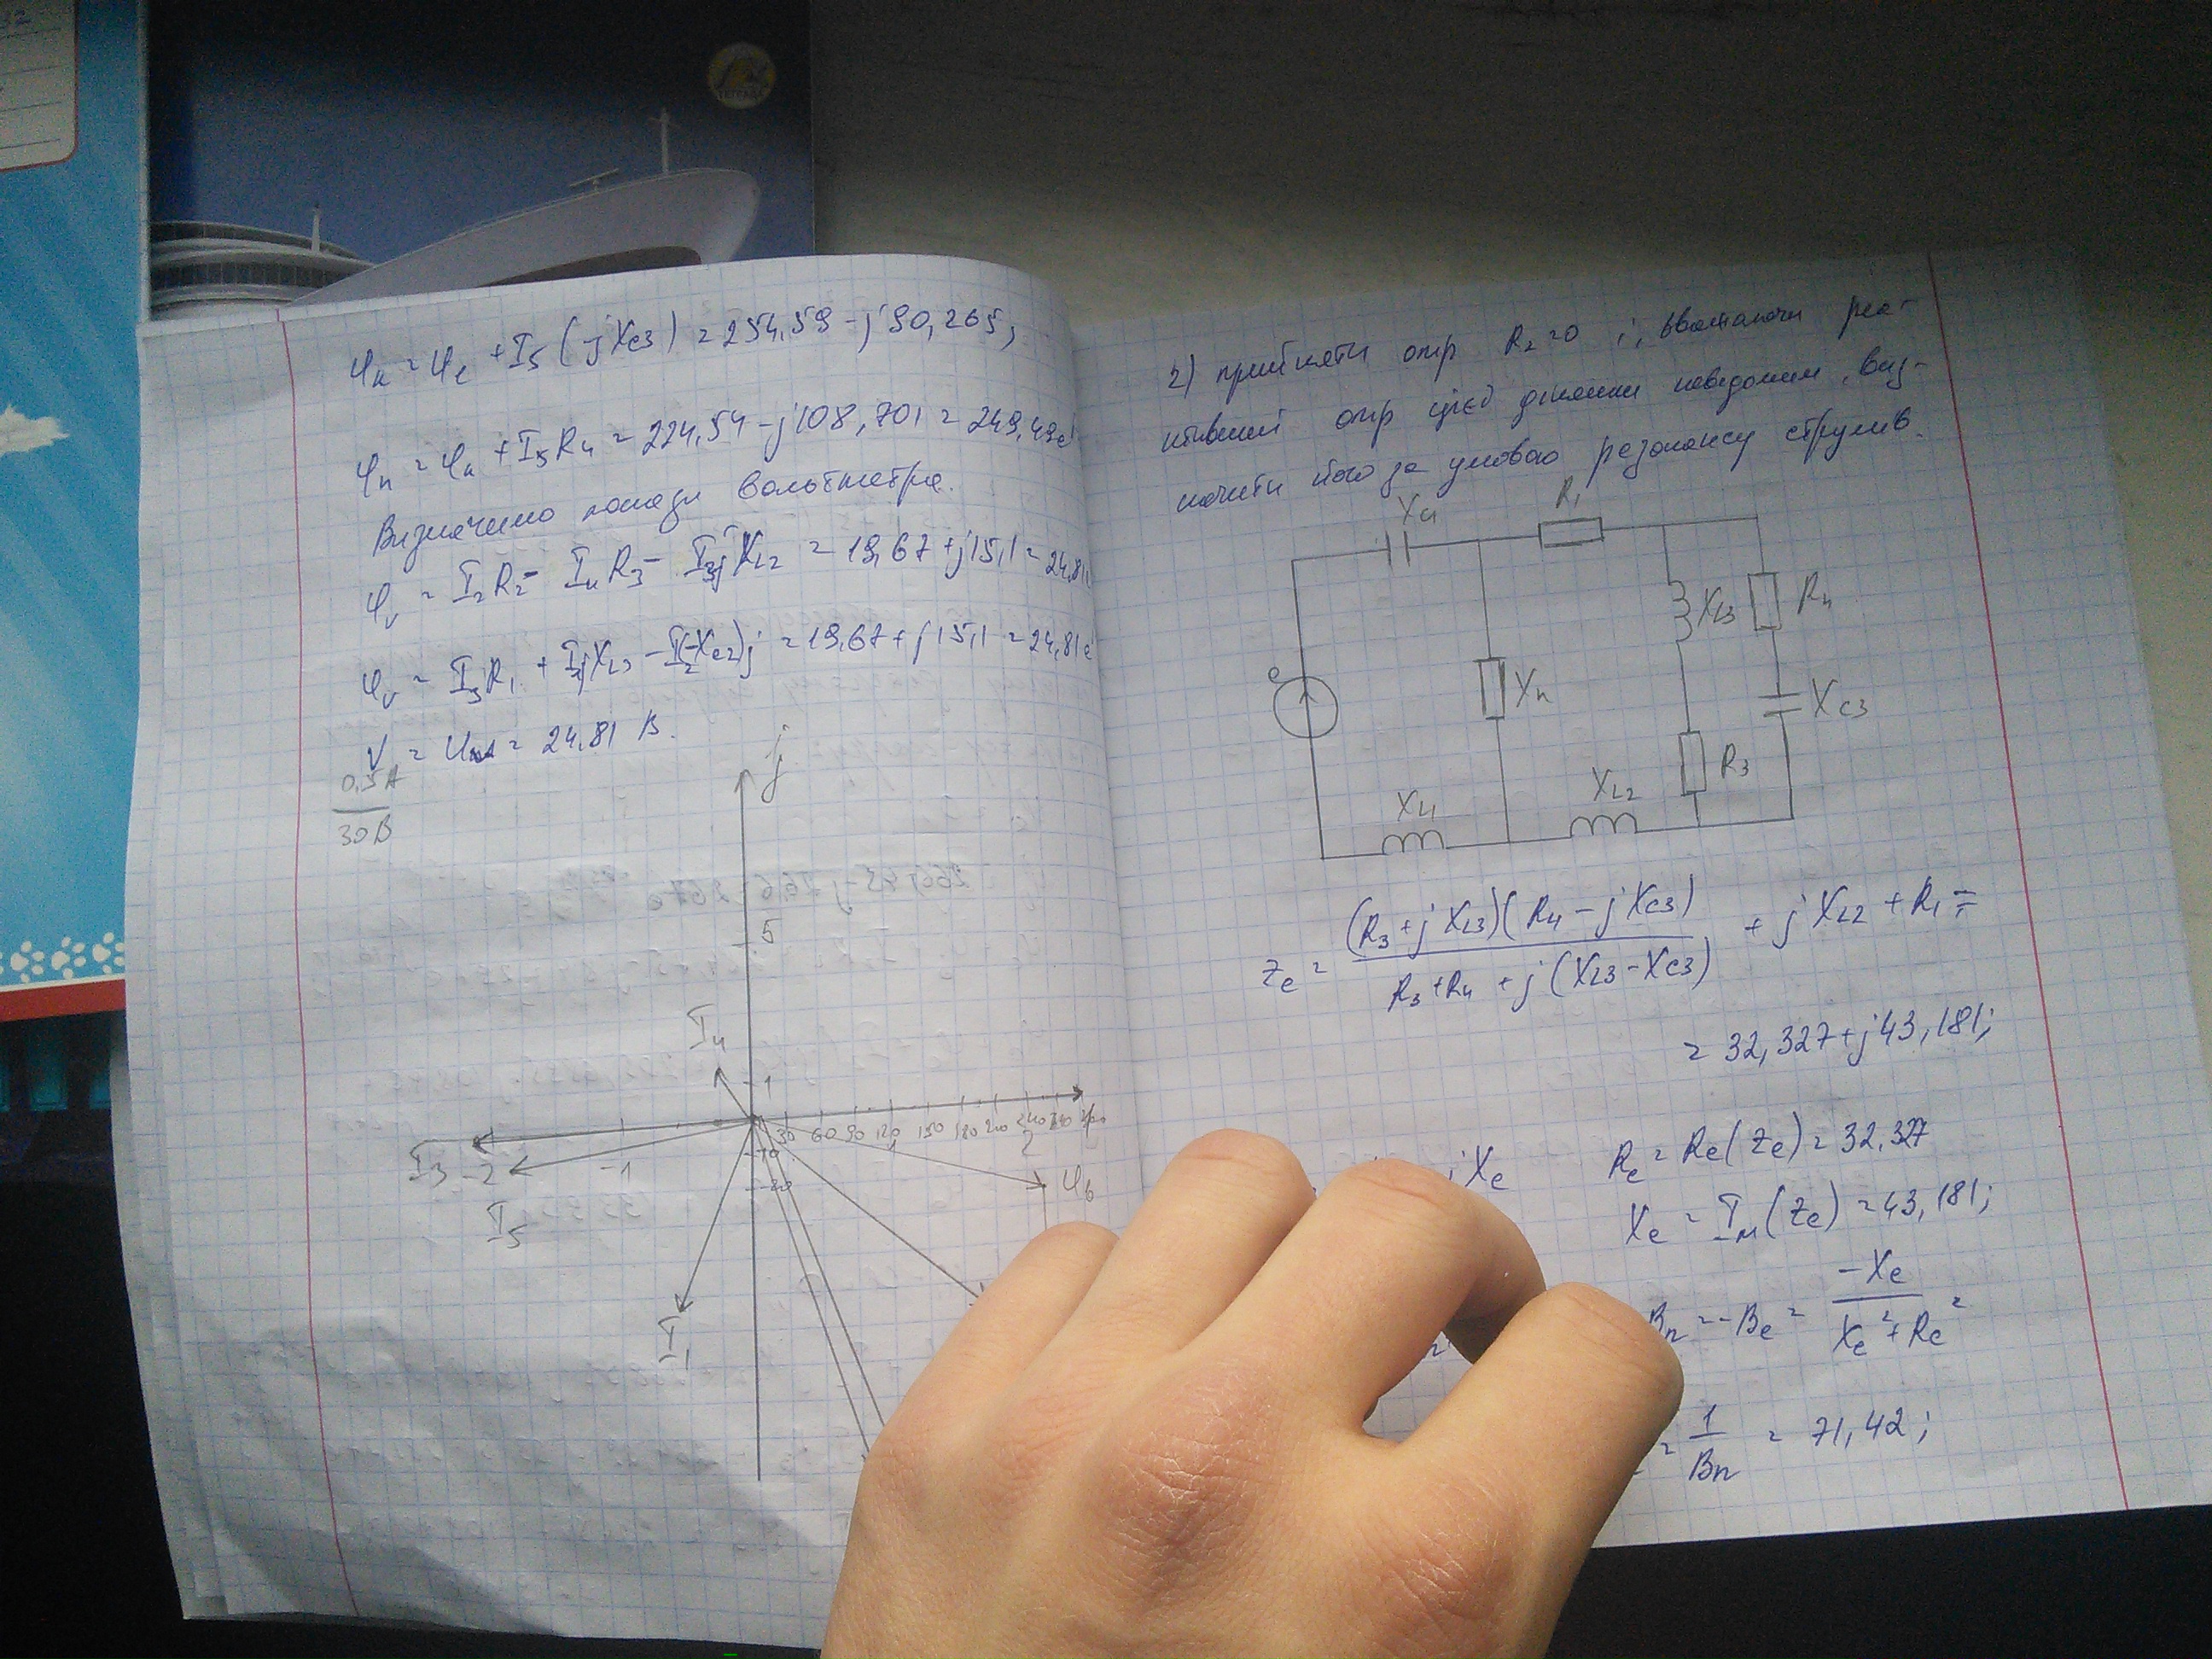 φк = φе + I5 (jXc3) = 254,59 - j90,265;
φn = φк + I5R4 = 224,54 - j108,701 = 249,49e
Визначимо покази вольтметра.
φv = I2R2 - I4R3 - I3jXL2 = 19,67 + j15,1 = 24,81
φv = I3R1 + I4jXL3 - I2(-Xc2)j = 19,67 + j15,1 = 24,81e
V = = 24.81 В.
0,5А
30В
j
5
I4
1
30 60 90 120 150 180 210 240
I3 -2 -1 1 2
-10
-20
φв
I5
I1
2) прийняти опр R2=0 і, вважаючи реа-
ктивний опр цієї ділянки невідомим, виз-
начити його за умовою резонансу струмів.
Xc1
R1
e
Xn
XL3
R4
Xc3
R3
XL2
XL1
Ze = (R3 + jXL3)(R4 - jXc3) / R3 + R4 + j(XL3 - Xc3) + jXL2 + R1 =
= 32,327 + j43,181;
jXe
Re = Re(Ze) = 32,327
Xe = Im(Ze) = 43,181;
Bn = -Be = -Xe / Xe² + Re²
= 1 / Bn = 71,42;